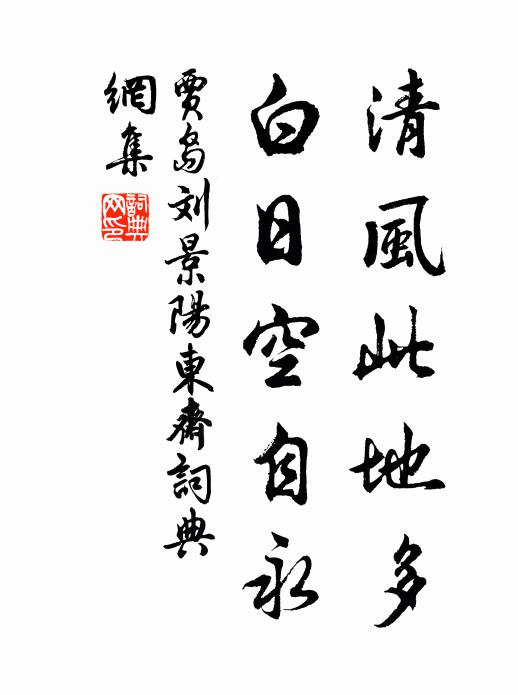 清風此地多
白日空自永
賈島刘景陽東齋詞典
網集
詞典
网印